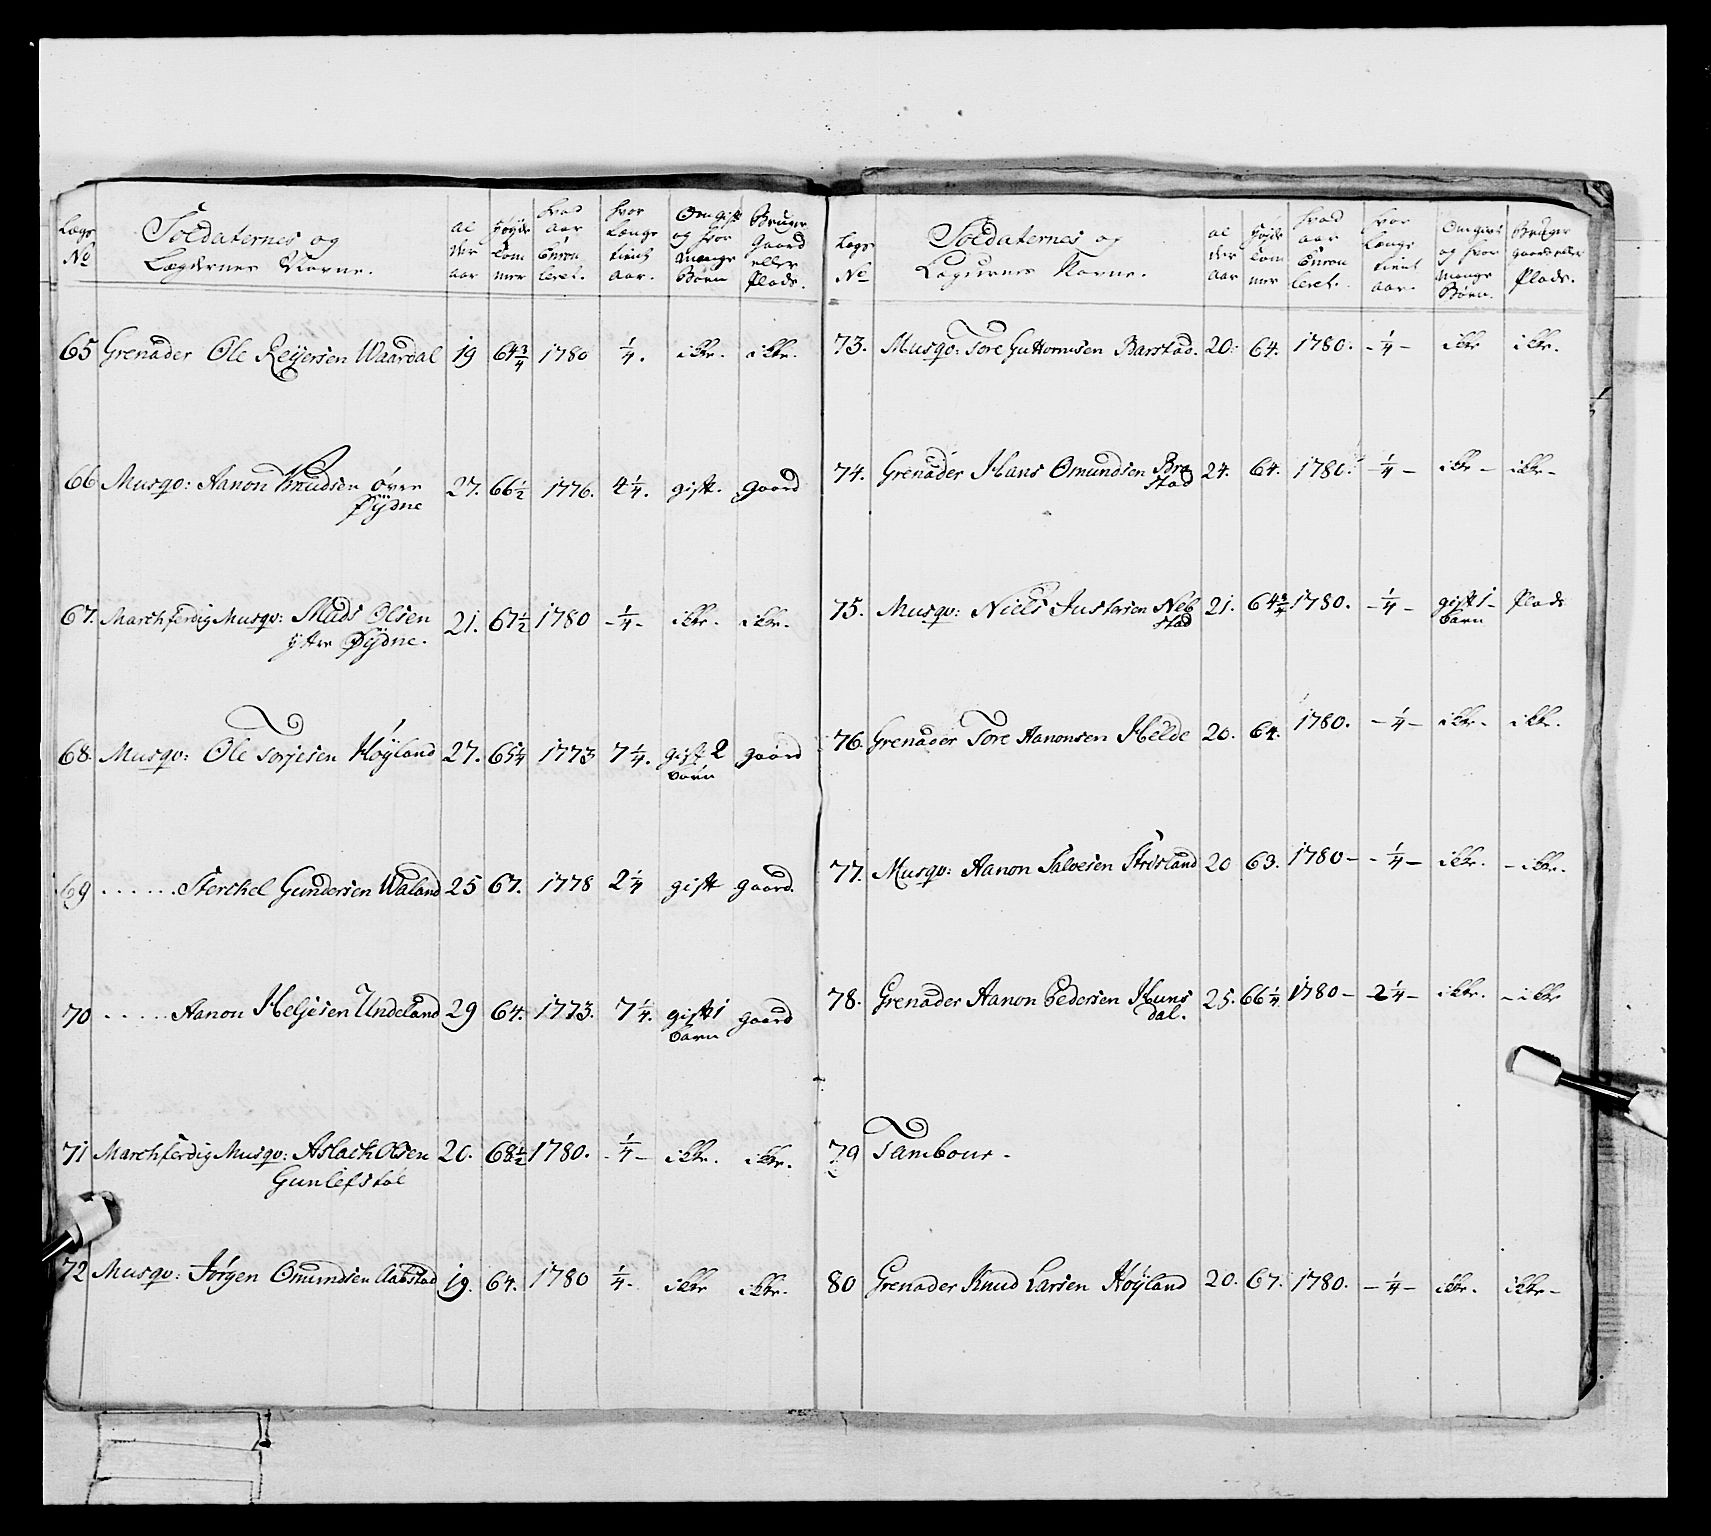 Lægs No | Soldaternes og Lægdernes Navne. | al der aar | Høyde tom mer | hvad aar Enrou leret. | hvor længe tient aar. | Om gift og hvor mange Børn | Bruger Gaard eller Plads.
65 Grenader Ole Reyersen Waardal 19 64 3/4 1780 1/4. ikke. ikke.
66 Musqv: Aanon Knudsen øvre Øÿdne 27. 66 1/2 1776. 4 1/4. gift. gaard
67. Marchferdig Musqv: Mads Olsen ÿttre Øÿdne. 21. 67 1/2 1780 -1/4- ikke. ikke.
68. Musqv: Ole Torjesen Høyland 27. 65 1/4 1773 7 1/4. gift 2 børn gaard
69 . . . . . . Sterchel Gundersen Waland 25 67. 1778 2 1/4 gift gaard.
70 . . . . . Aanon Heljesen Undeland 29 64. 1773. 7 1/4. gift 1 barn gaard
71 Marchferdig Musqv: Aslach Olsen Gunlefstøl 20. 68 1/2 1780. -1/4- ikke. ikke.
72 Musqv: Jørgen Omundsen Aabstad 19. 64. 1780 1/4. ikke ikke.
Lægs No | Soldaternes og Lægdernes Navne. | al der aar | Høyde tom mer | hvad aar Enrou leret. | hvor længe tient aar. | Om gift og hvor mange Børn. | Bruger gaard eller Plads.
73. Musqv: Tore Guttormsen Barstad. 20. 64. 1780. -1/4- ikke ikke.
74. Grenader Hans Omundsen Bra stad 24. 64. 1780. -1/4- ikke - ikke -
75. Musqv: Niels Justesen Neb stad 21. 64 3/4 1780. -1/4- gift 1 - barn Plads
76. Grenader Tore Aanonsen Helde 20. 64. 1780. -1/4- ikke. ikke.
77. Musqv: Aanon Salvesen Strisland 20 63. 1780 - -1/4- ikke. - ikke.
78. Grenader Aanon Pedersen Huns dal. 25. 66 1/4 1780 - -2 1/4- ikke. - ikke
79 Tambour -
80 Grenader Knud Larsen Høÿland 20. 67. 1780. -1/4- ikke. ikke -